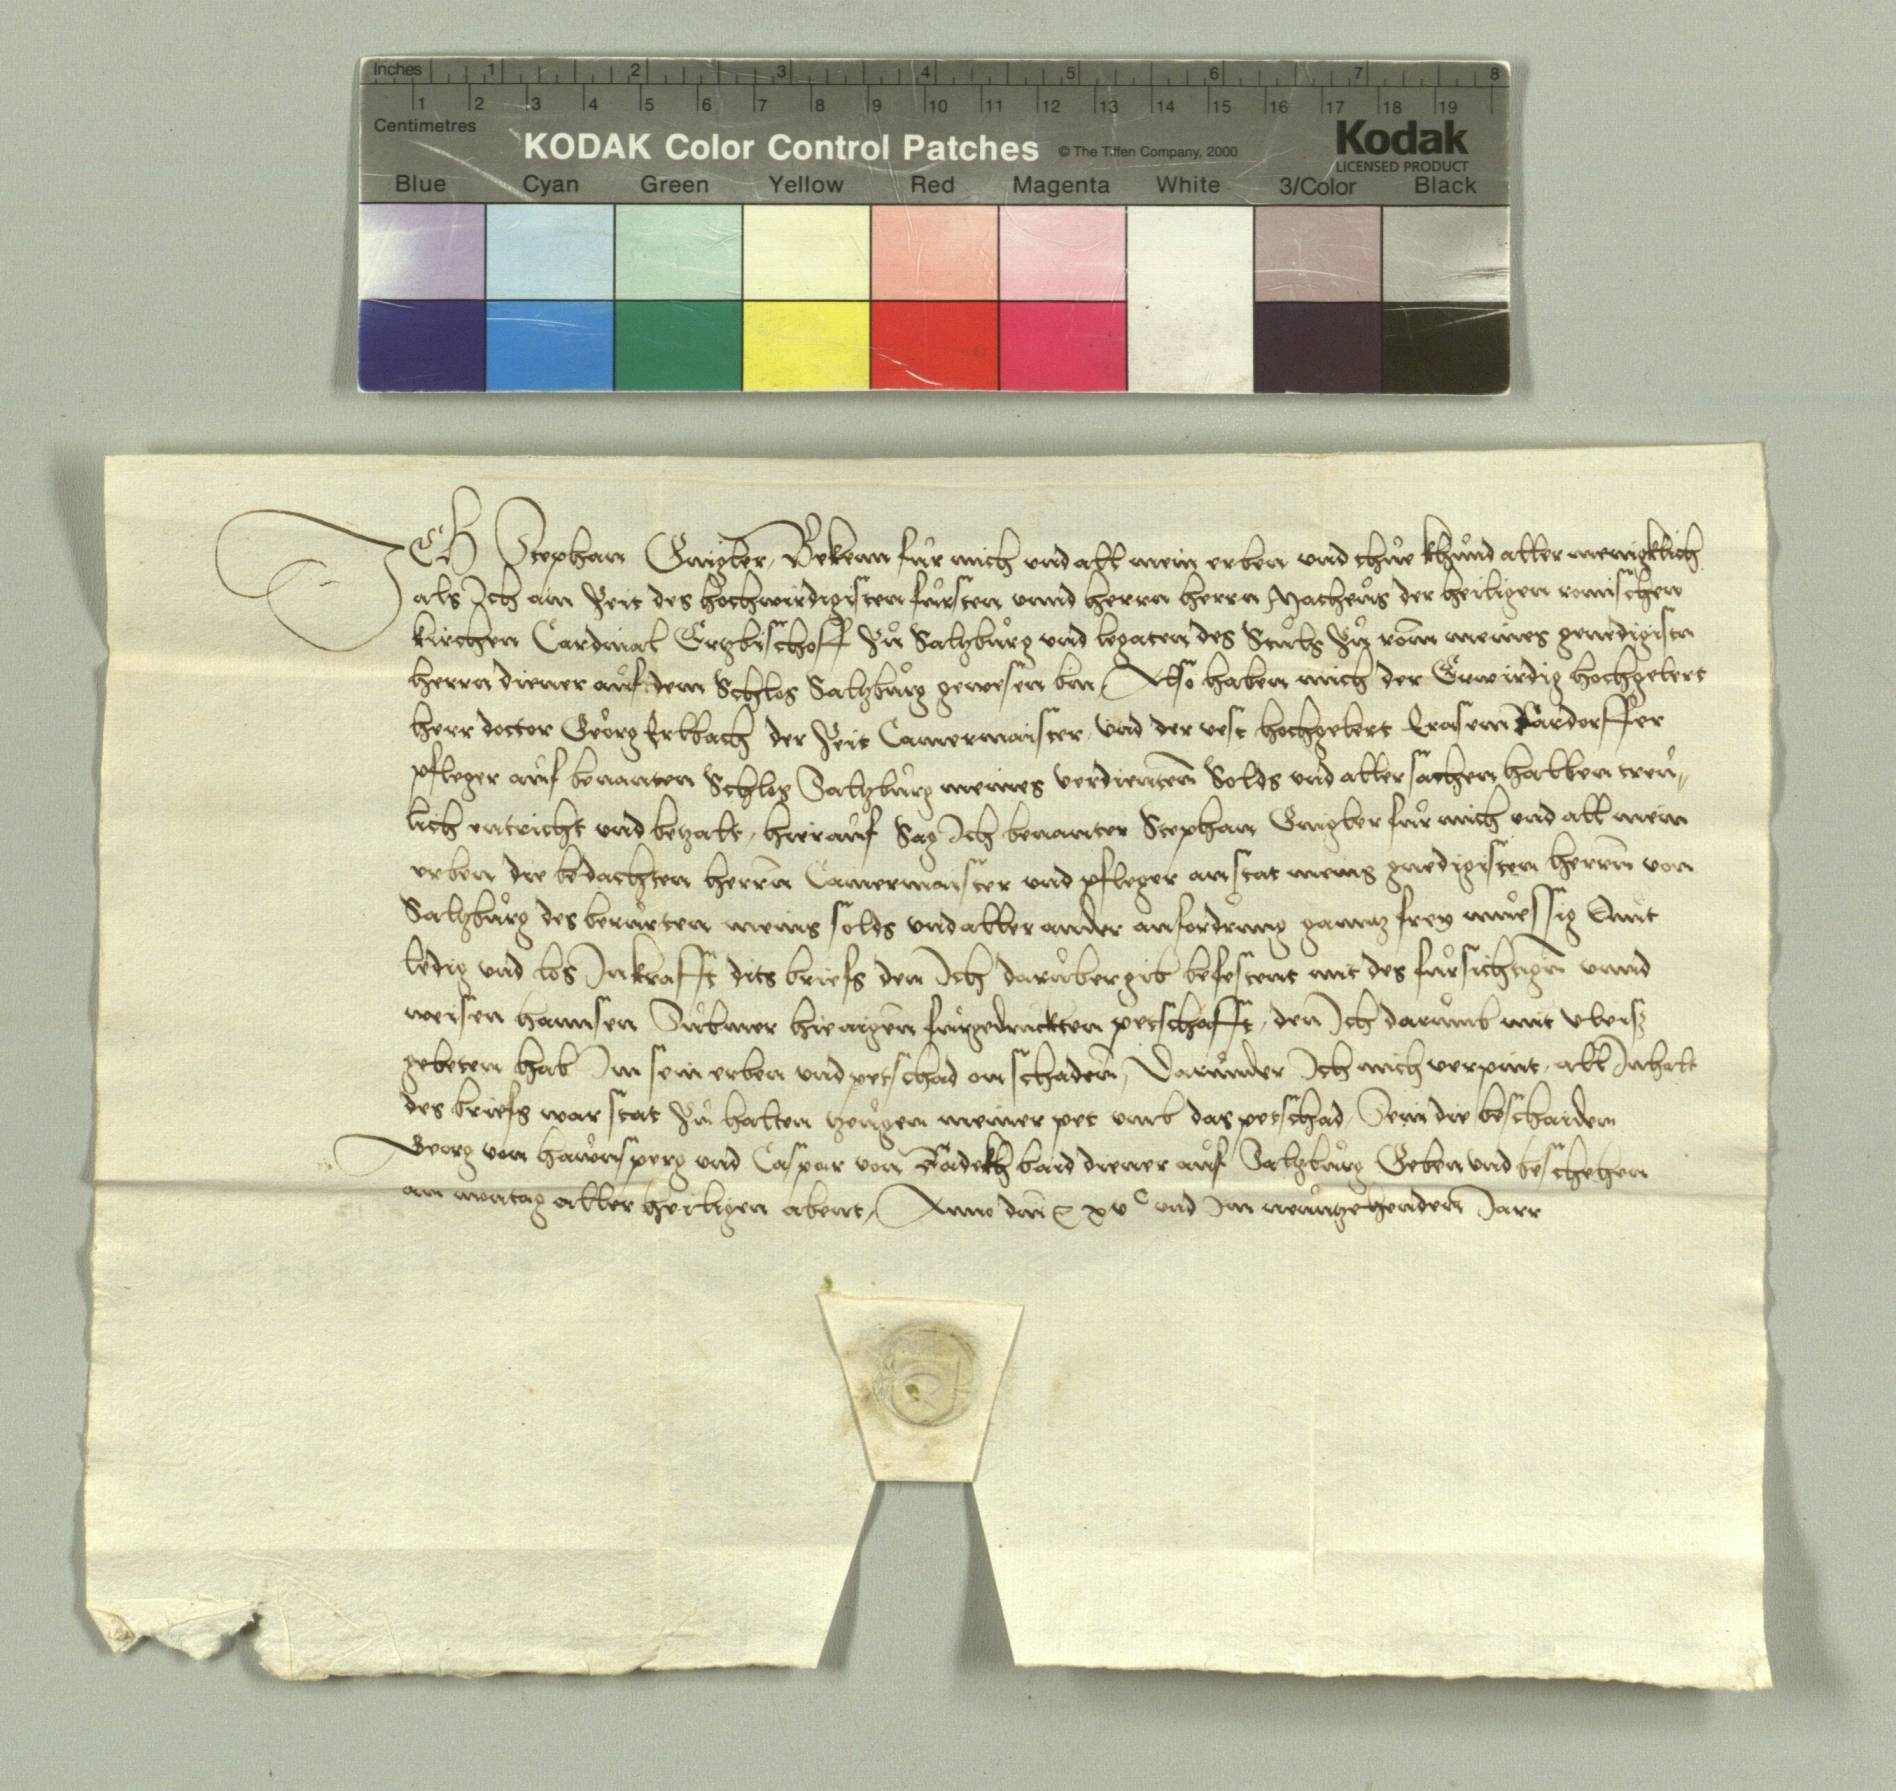 Inches 1 2 3 4 5 6 7 8
1 2 3 4 5 6 7 8 9 10 11 12 13 14 15 16 17 18 19
Centimetres
KODAK Color Control Patches © The Tiffen Company, 2000 Kodak
LICENSED PRODUCT
Blue Cyan Green Yellow Red Magenta White 3/Color Black
ICH Stephan Gnigler Bekenn für mich und all mein erben und thue khund aller menigklich
als Ich ain Zeit des hochwirdigisten fürsten unnd herrn herrn Matheus der heiligen romischen
kirchen Cardinal Ertzbischoff Zu Saltzburg und legaten des Stuls Zu rom meines genedigistn
herrn diener auf dem Schlos Saltzburg gewesen bin Also haben mich der Erwirdig hochgelert
herr doctor Georg der Zeit Camermaister und der vest hochgelert Erasem
pfleger auf benanten Schlos Saltzburg meines verdienten Solds und aller sachen halben treu„
lich entricht und betzalt, hierauf Sag Ich benanter Stephan Gnigler für mich und all mein
erben die bedachten herrn Camermaister und pfleger anstat meins gnedigisten herrn von
Saltzburg des berurten meins solds und aller ander anfordrung gantz frey muessig Quit
ledig und los In krafft dits briefs den Ich daruber gib befestent mit des fürsichtigen unnd
weisen hannsen hienigen fürgedruckten petschafft, den Ich darumb mit vleis
gebeten hab Im sein erben und petschad on schaden, Darunder Ich mich verpint, all Inhalt
des briefs war stat Zu halten tzeugen meiner pet umb das petschad Sein die beschaiden
Georg von hawnsperg und Caspar von baid diener auf Saltzburg Geben und beschehen
an montag aller heiligen abent, Anno dm xv c und Im neuntzehenden Jarr